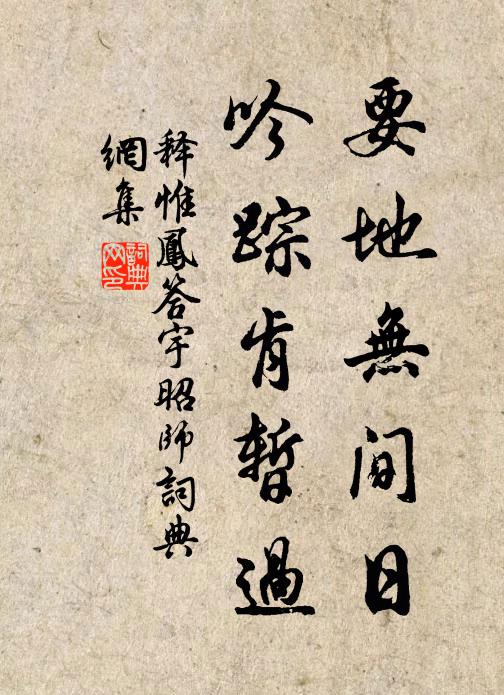 要地無間日
吟踪肯暫過
释惟鳳答宇昭師詞典
網集
詞典
网印